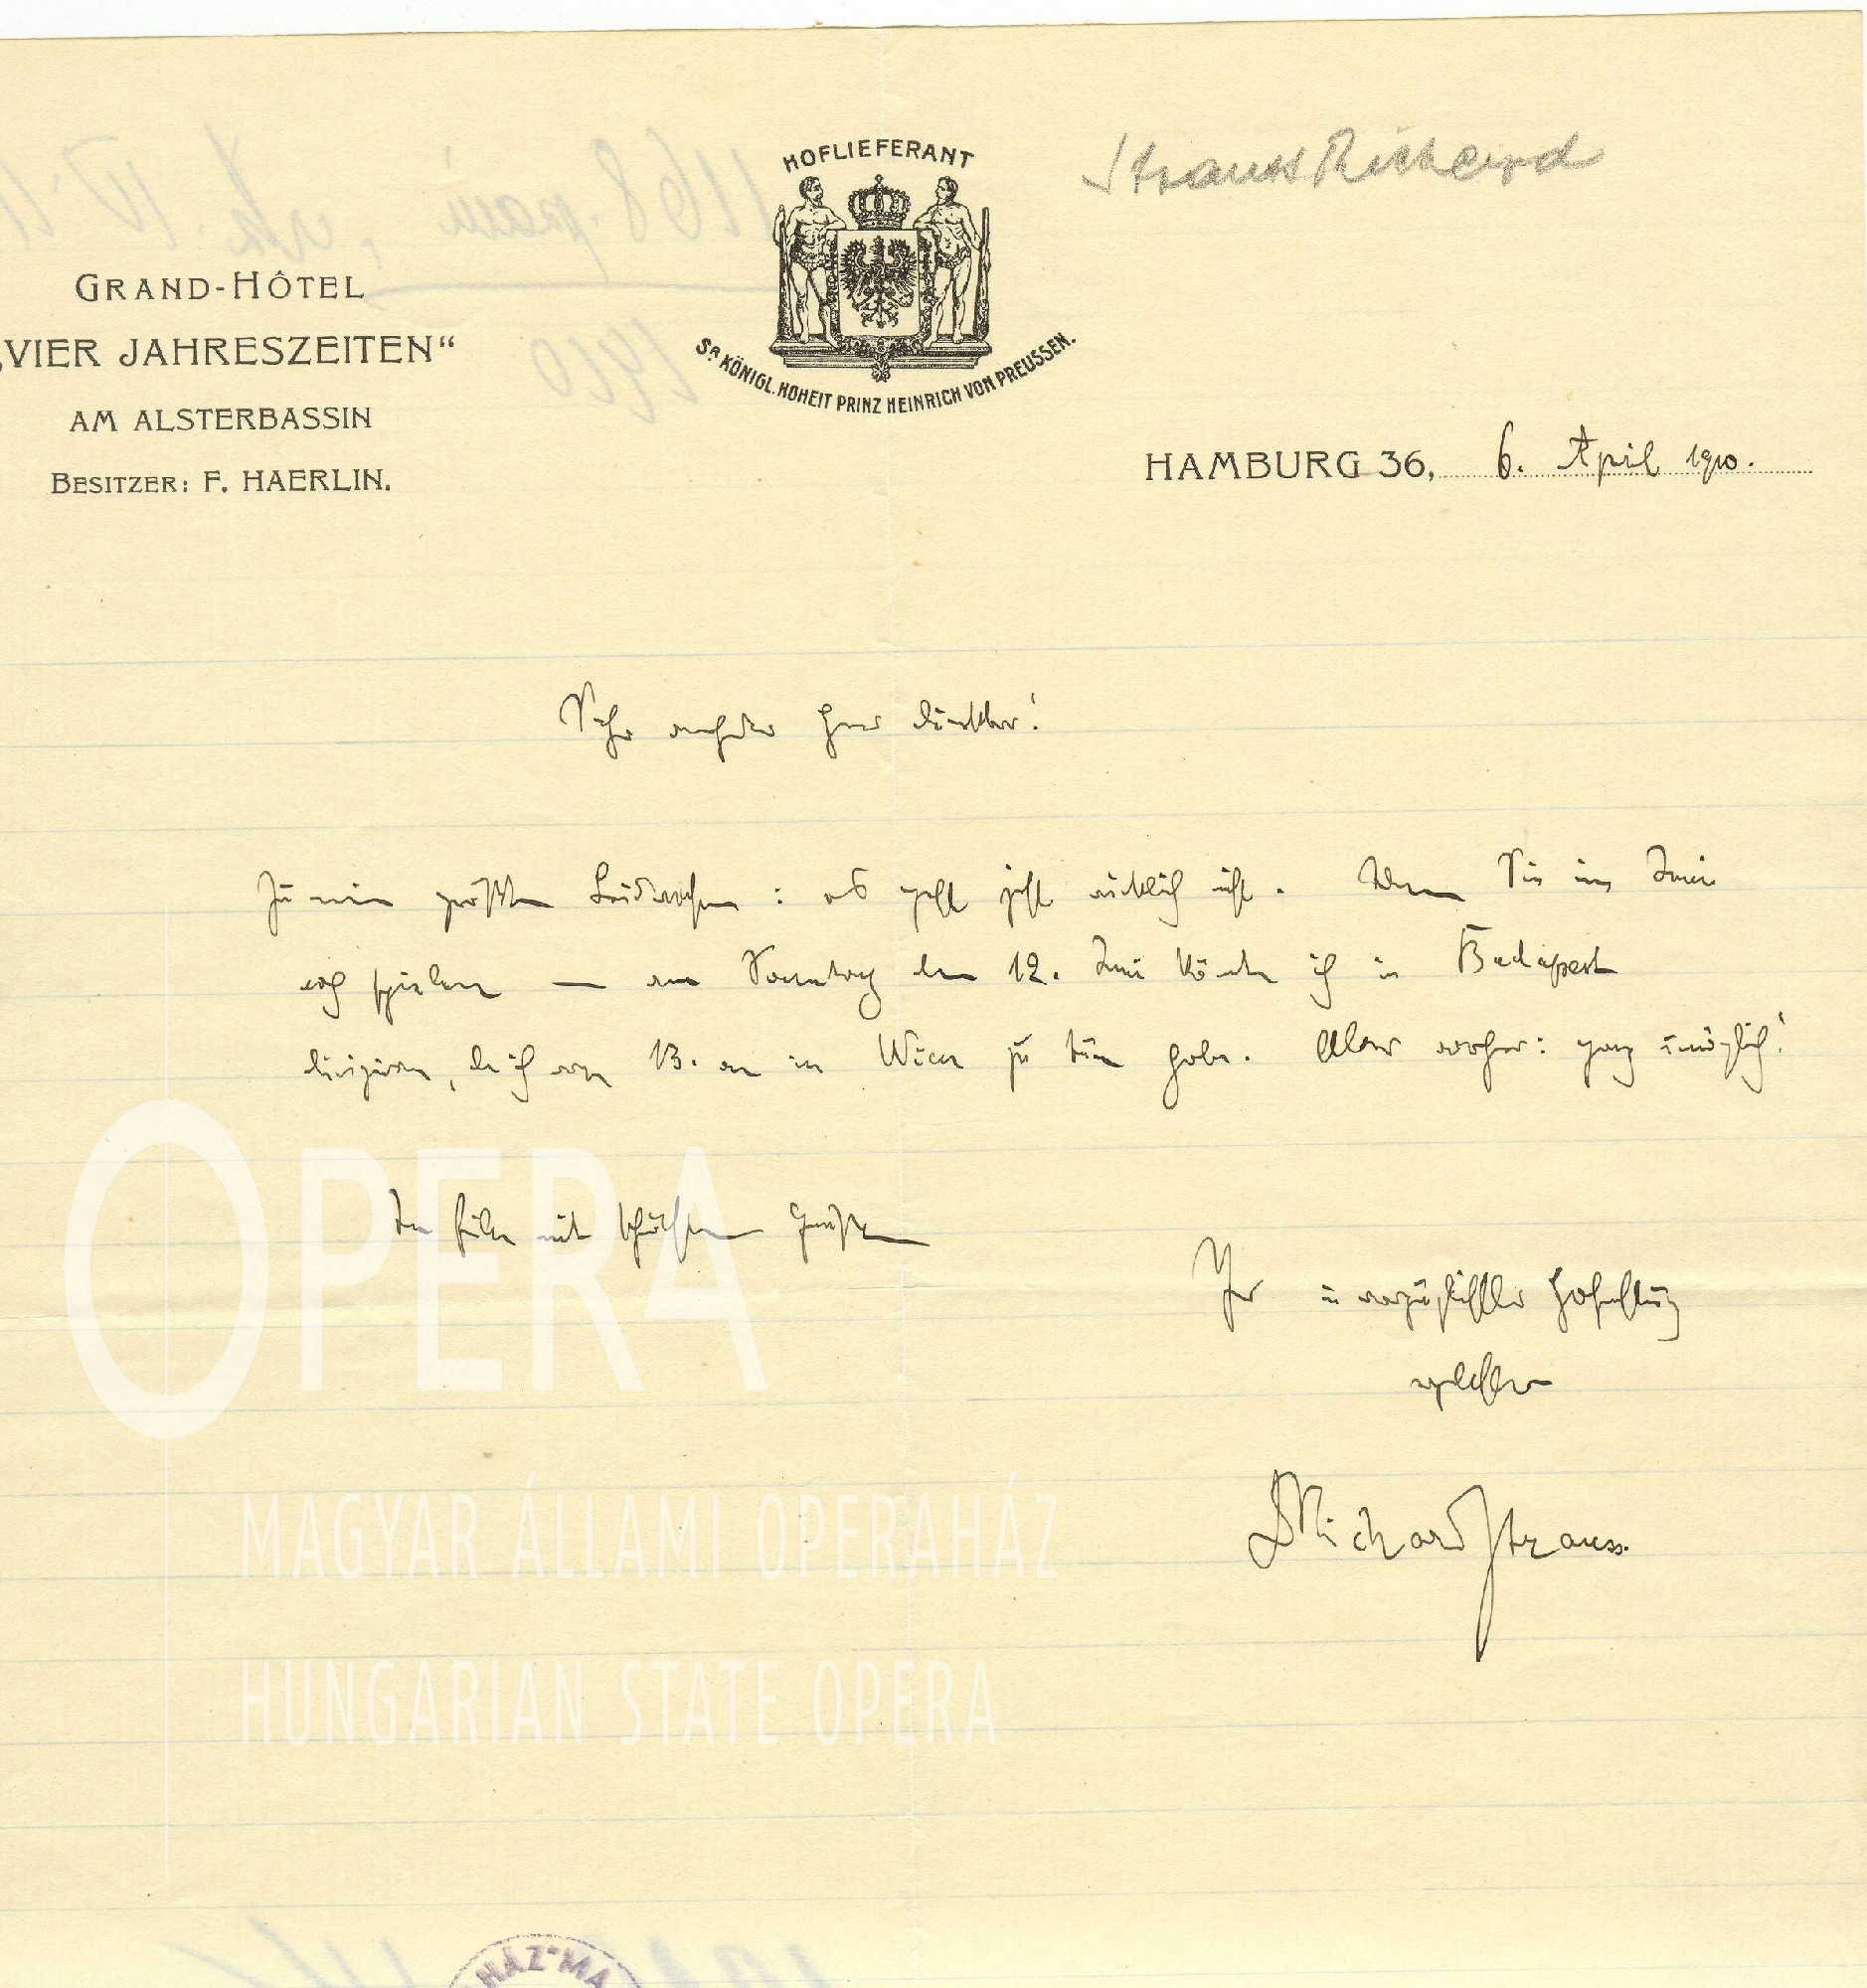 Strauss Richard
HOFLIEFERANT
Sr. KÖNIGL. HOHEIT PRINZ HEINRICH VON PREUSSEN.
GRAND-HÔTEL
„VIER JAHRESZEITEN“
AM ALSTERBASSIN
BESITZER: F. HAERLIN.
HAMBURG 36, 6. April 1910.
Sehr verehrter Herr Direktor!
Zu meinem größten Leidwesen: es geht jetzt wirklich nicht. Wenn Sie im Juni
noch spielen — am Sonntag den 12. Juni könnte ich in Budapest
dirigieren, da ich vom 13. an in Wien zu tun habe. Aber vorher: ganz unmöglich!
In Eile mit schönsten Grüßen
Ihr in vorzüglichster Hochachtung
ergebenster
DRichard Strauss.
OPERA
MAGYAR ÁLLAMI OPERAHÁZ
HUNGARIAN STATE OPERA
HÁZ*MA